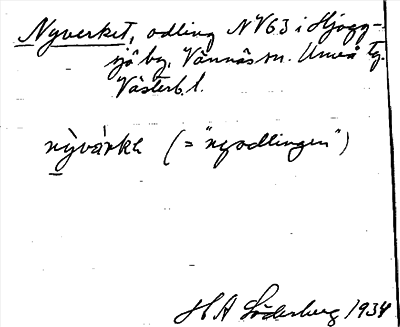 Nyverket, odling NV63 i Hjogg-
sjö by, Vännäs sn. Umeå tg.
Västerb. l.
nỳvárkə (= "nyodlingen")
H A Söderberg 1934